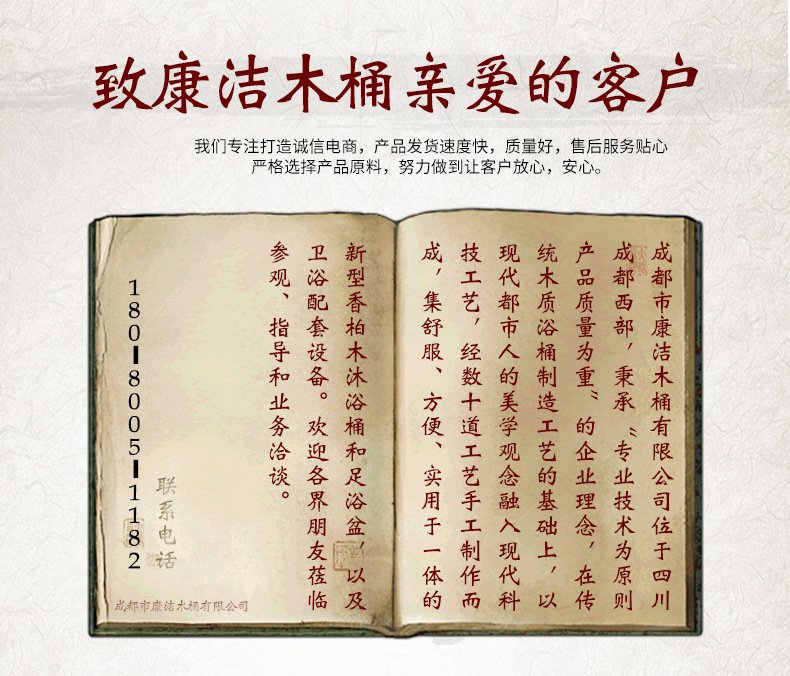 致康洁木桶亲爱的客户
我们专注打造诚信电商，产品发货速度快，质量好，售后服务贴心
严格选择产品原料，努力做到让客户放心，安心。
成都市康洁木桶有限公司位于四川
成都西部，秉承“专业技术为原则
产品质量为重”的企业理念，在传
统木质浴桶制造工艺的基础上，以
现代都市人的美学观念融入现代科
技工艺，经数十道工艺手工制作而
成，集舒服、方便、实用于一体的
新型香柏木沐浴桶和足浴盆，以及
卫浴配套设备。欢迎各界朋友莅临
参观、指导和业务洽谈。
联系电话
180-8005-1182
成都市康洁木桶有限公司